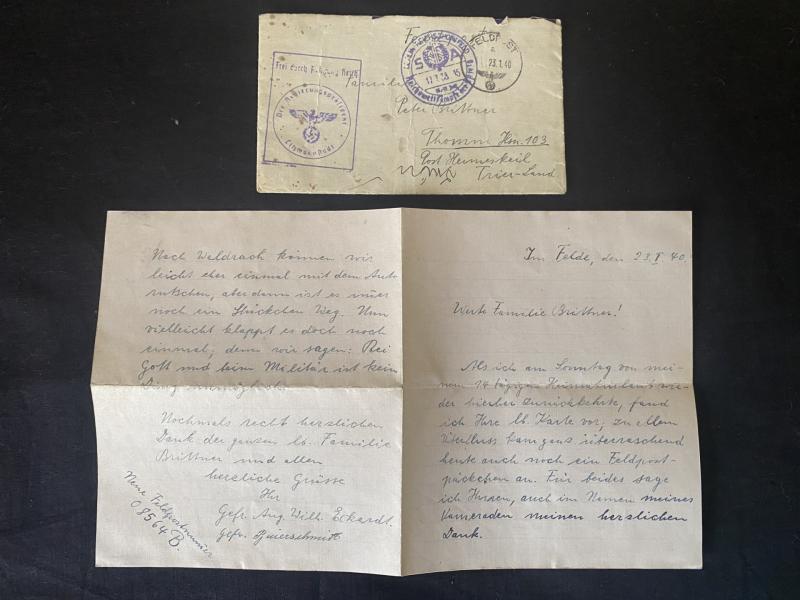 Feldpost
FELDPOST
a
23.1.40
Frei durch Ablösung Reich
Der Regierungspräsident
Litzmannstadt
SA
Reichswettkämpfe der
Familie
Peter Brittner
Thomm Hsn. 103
Post Hermeskeil
Trier-Land
Nach Waldrach können wir
leicht eher einmal mit dem Auto
rutschen, aber dann ist es immer
noch ein Stückchen Weg. Nun
vielleicht klappt es doch noch
einmal, denn wir sagen: Bei
Gott und beim Militär ist kein
Ding unmöglich.
Nochmals recht herzlichen
Dank der ganzen lb. Familie
Brittner und allen
herzliche Grüsse
Ihr
Gefr. Aug. Wilh. Eckardt.
Gefr. Baierschmidt
Neue Feldpostnummer
08564 B.
Im Felde, den 23.I.40.
Werte Familie Brittner!
Als ich am Sonntag von mei-
nem 14 tägigen Heimaturlaub wie-
der hierher zurückkehrte, fand
ich Ihre lb. Karte vor, zu allem
Überfluss kam ganz überraschend
heute auch noch ein Feldpost-
päckchen an. Für beides sage
ich Ihnen, auch im Namen meines
Kameraden meinen herzlichen
Dank.